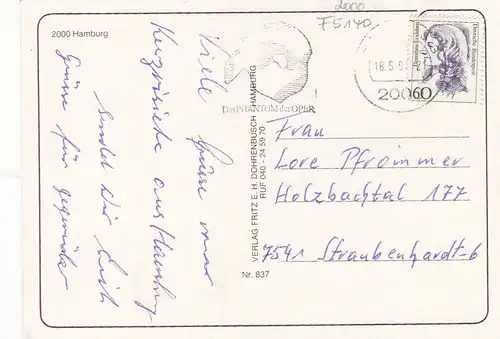 2000 Hamburg
2000
F5140.
Viele Grüsse
Kurzvisite aus Hamburg
sendet Dir
Grüsse für
DAS PHANTOM DER OPER
VERLAG FRITZ E. H. DOHRENBUSCH · HAMBURG
RUF 040 - 24 59 70
Nr. 837
18.5.9
200
60
Deutsche Bundespost
Frau
Lore Pfrommer
Holzbachtal 177
7541 Straubenhardt-6